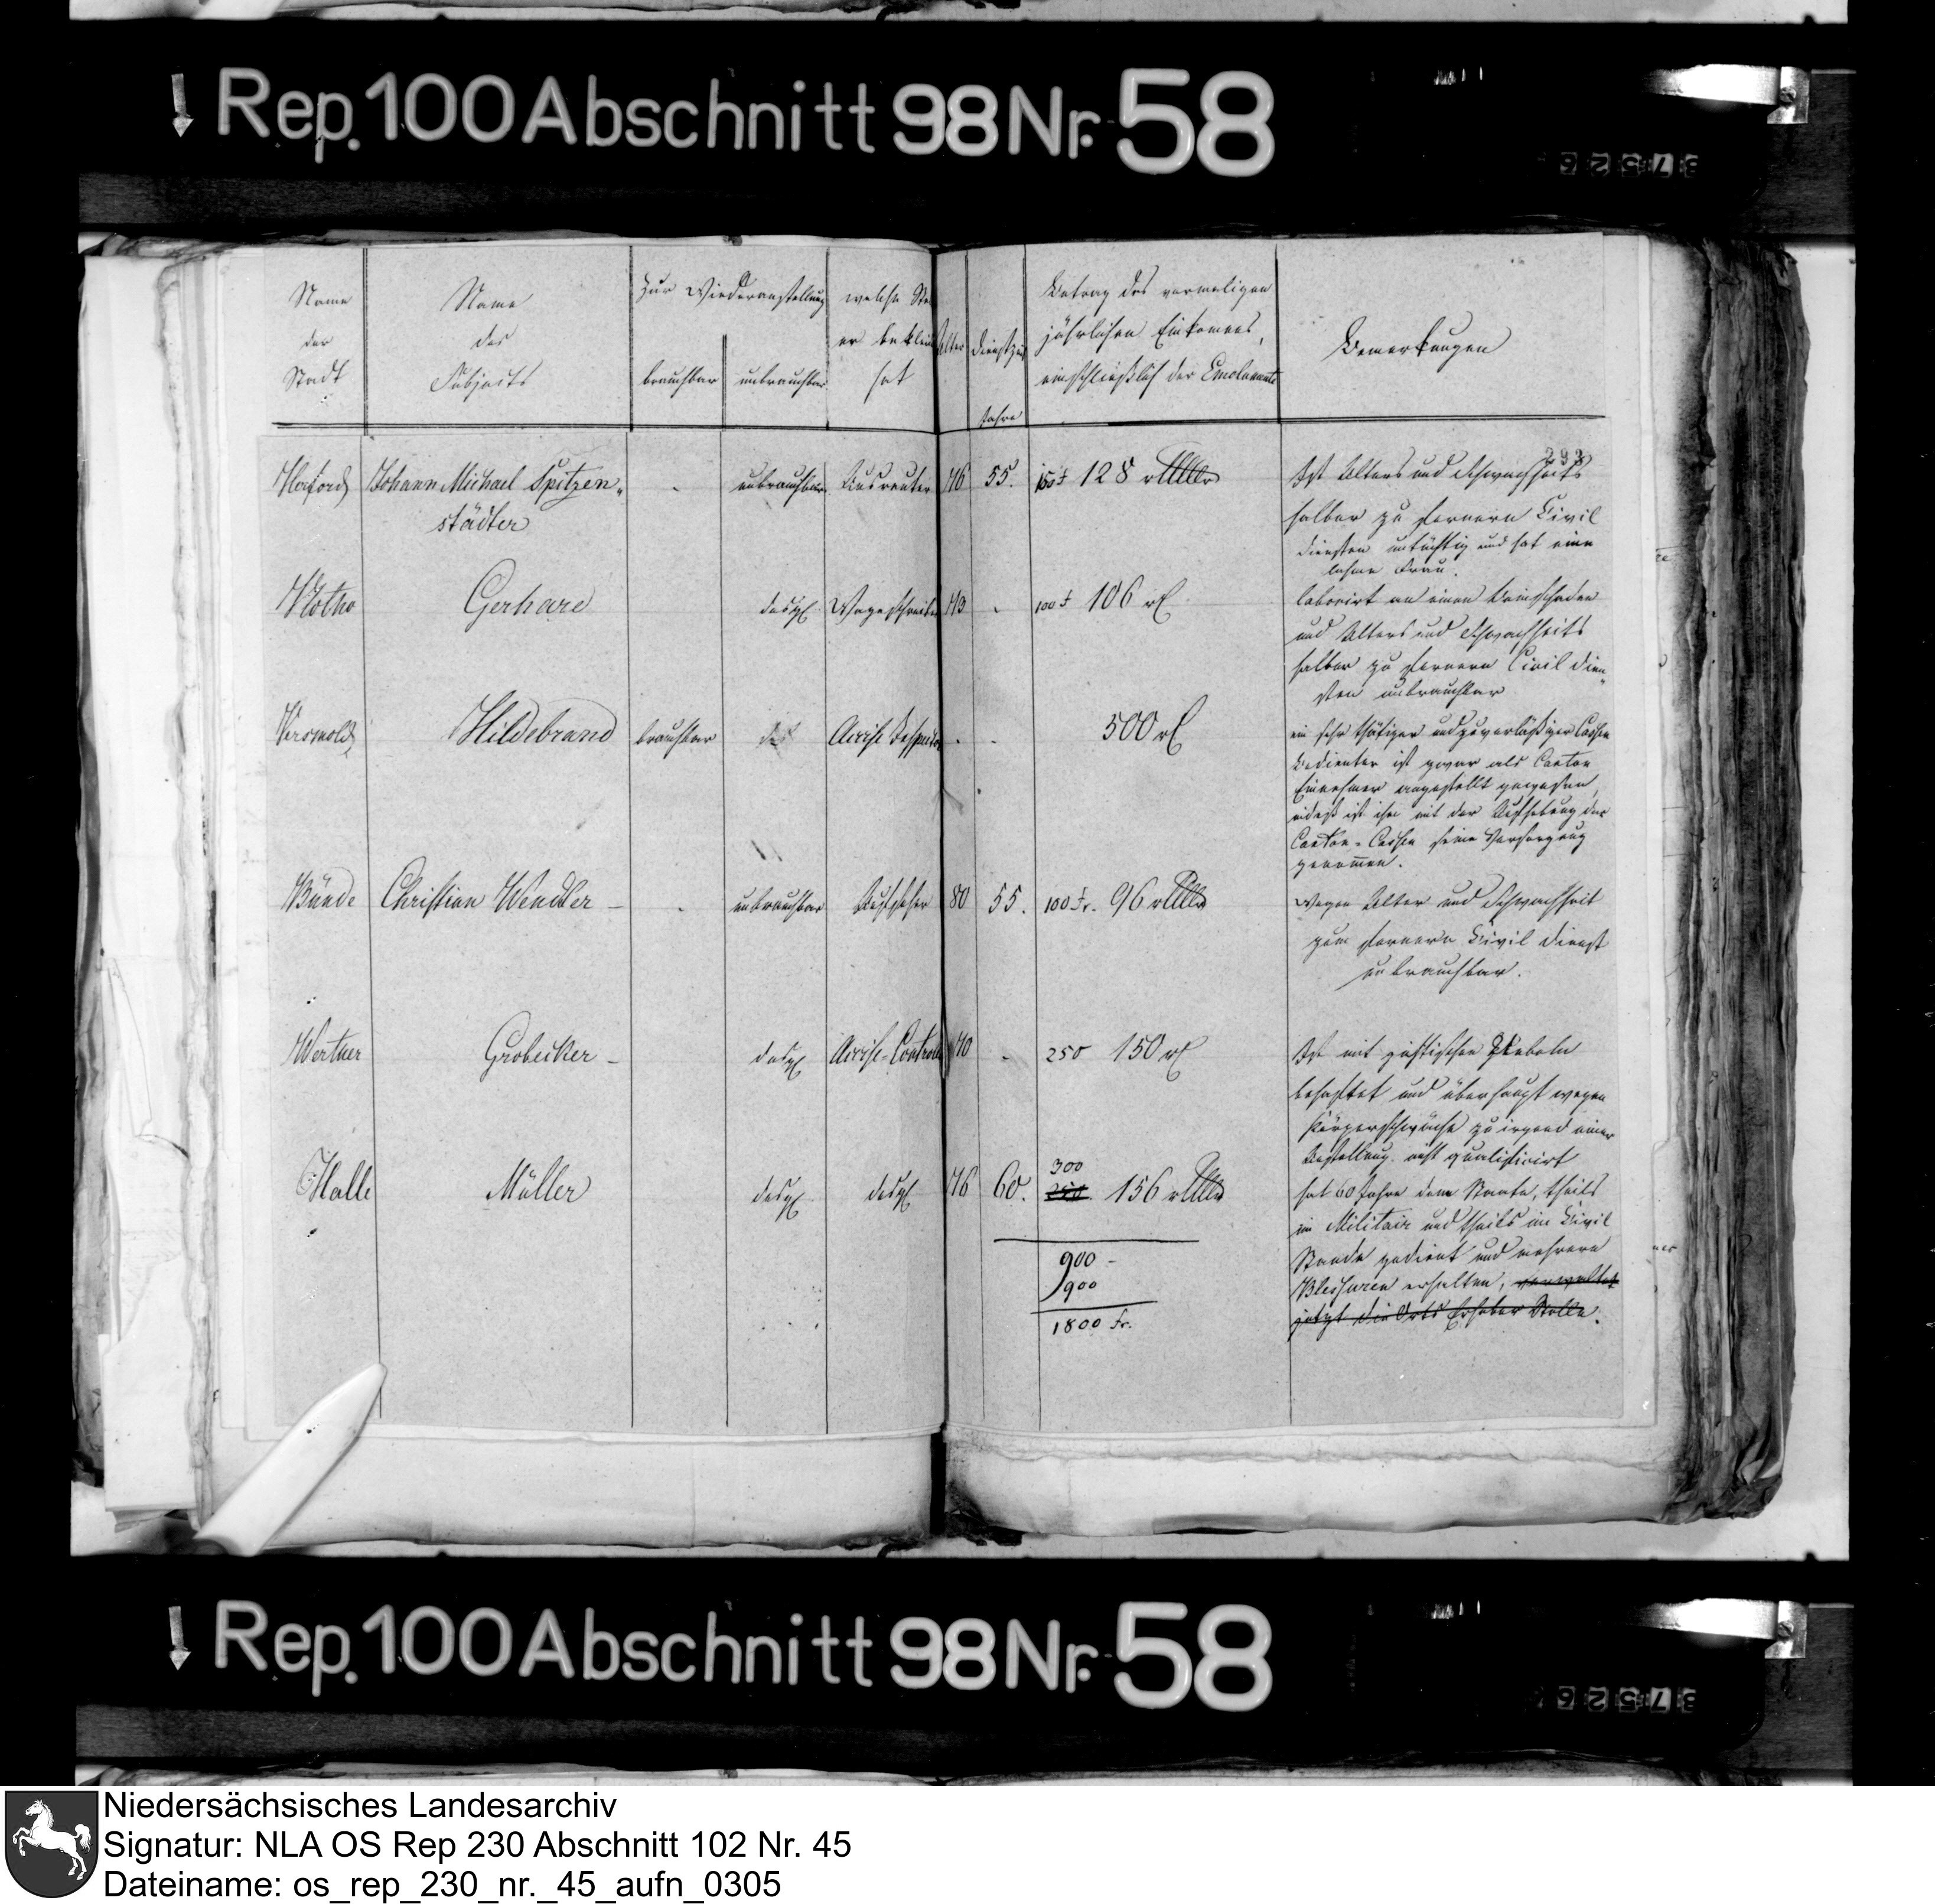 Rep. 100 Abschnitt 98 Nr. 58
37526
Name der Stadt
Name des Subjects
Zur Wiederanstellung
brauchbar
unbrauchbar
welche Ste
er bekleid
hat
Alter
Dienstzeit
Jahre
Betrag des vormaligen
jährlichen Einkomens,
einschließlich der Emolumente
Bemerkungen
293
Herford Johann Michael Spitzen„ - unbrauchbar Ausreuter 76 55. 150 f 128 rthlr
städter
Ist Alters und Schwachheits
halber zu fernern Civil
diensten untüchtig und hat eine
lahme Frau.
Vlotho Gerhard desgl. Wageschreiber 73 - 100 f 106 rl
laborirt an einen Beinschaden
und Alters und Schwachheits
halber zu fernern Civil dien„
sten unbrauchbar
Versmold Hildebrand brauchbar Accise Inspector - - 500 rl
ein sehr thätiger und zuverläßiger Cassen
bedienter ist zwar als Canton
Einnehmer angestellt gewesen,
indeß ist ihm mit der Aufhebung der
Canton-Cassen seine Versorgung
genommen.
Bünde Christian Wendler - - unbrauchbar Aufseher 80 55. 100 fr. 96 rthlr
Wegen Alter und Schwachheit
zum fernern Civil dienst
unbrauchbar.
Werther Grobecker - desgl Accise-Controlle 70 - 250 150 rl
Ist mit gichtischen Uebeln
behaftet und überhaupt wegen
Körperschwäche zu irgend einer
Anstellung nicht qualificirt
Halle Müller desgl desgl 76 60. 300 250 156 rthlr
hat 60 Jahre dem Staate, theils
im Militair und theils im Civil
Stande gedient und mehrere
Blessuren erhalten, verwaltet
jetzt die Orts Erheber Stelle.
900 -
900
1800 fr.
Rep. 100 Abschnitt 98 Nr. 58
37526
Niedersächsisches Landesarchiv
Signatur: NLA OS Rep 230 Abschnitt 102 Nr. 45
Dateiname: os_rep_230_nr._45_aufn_0305